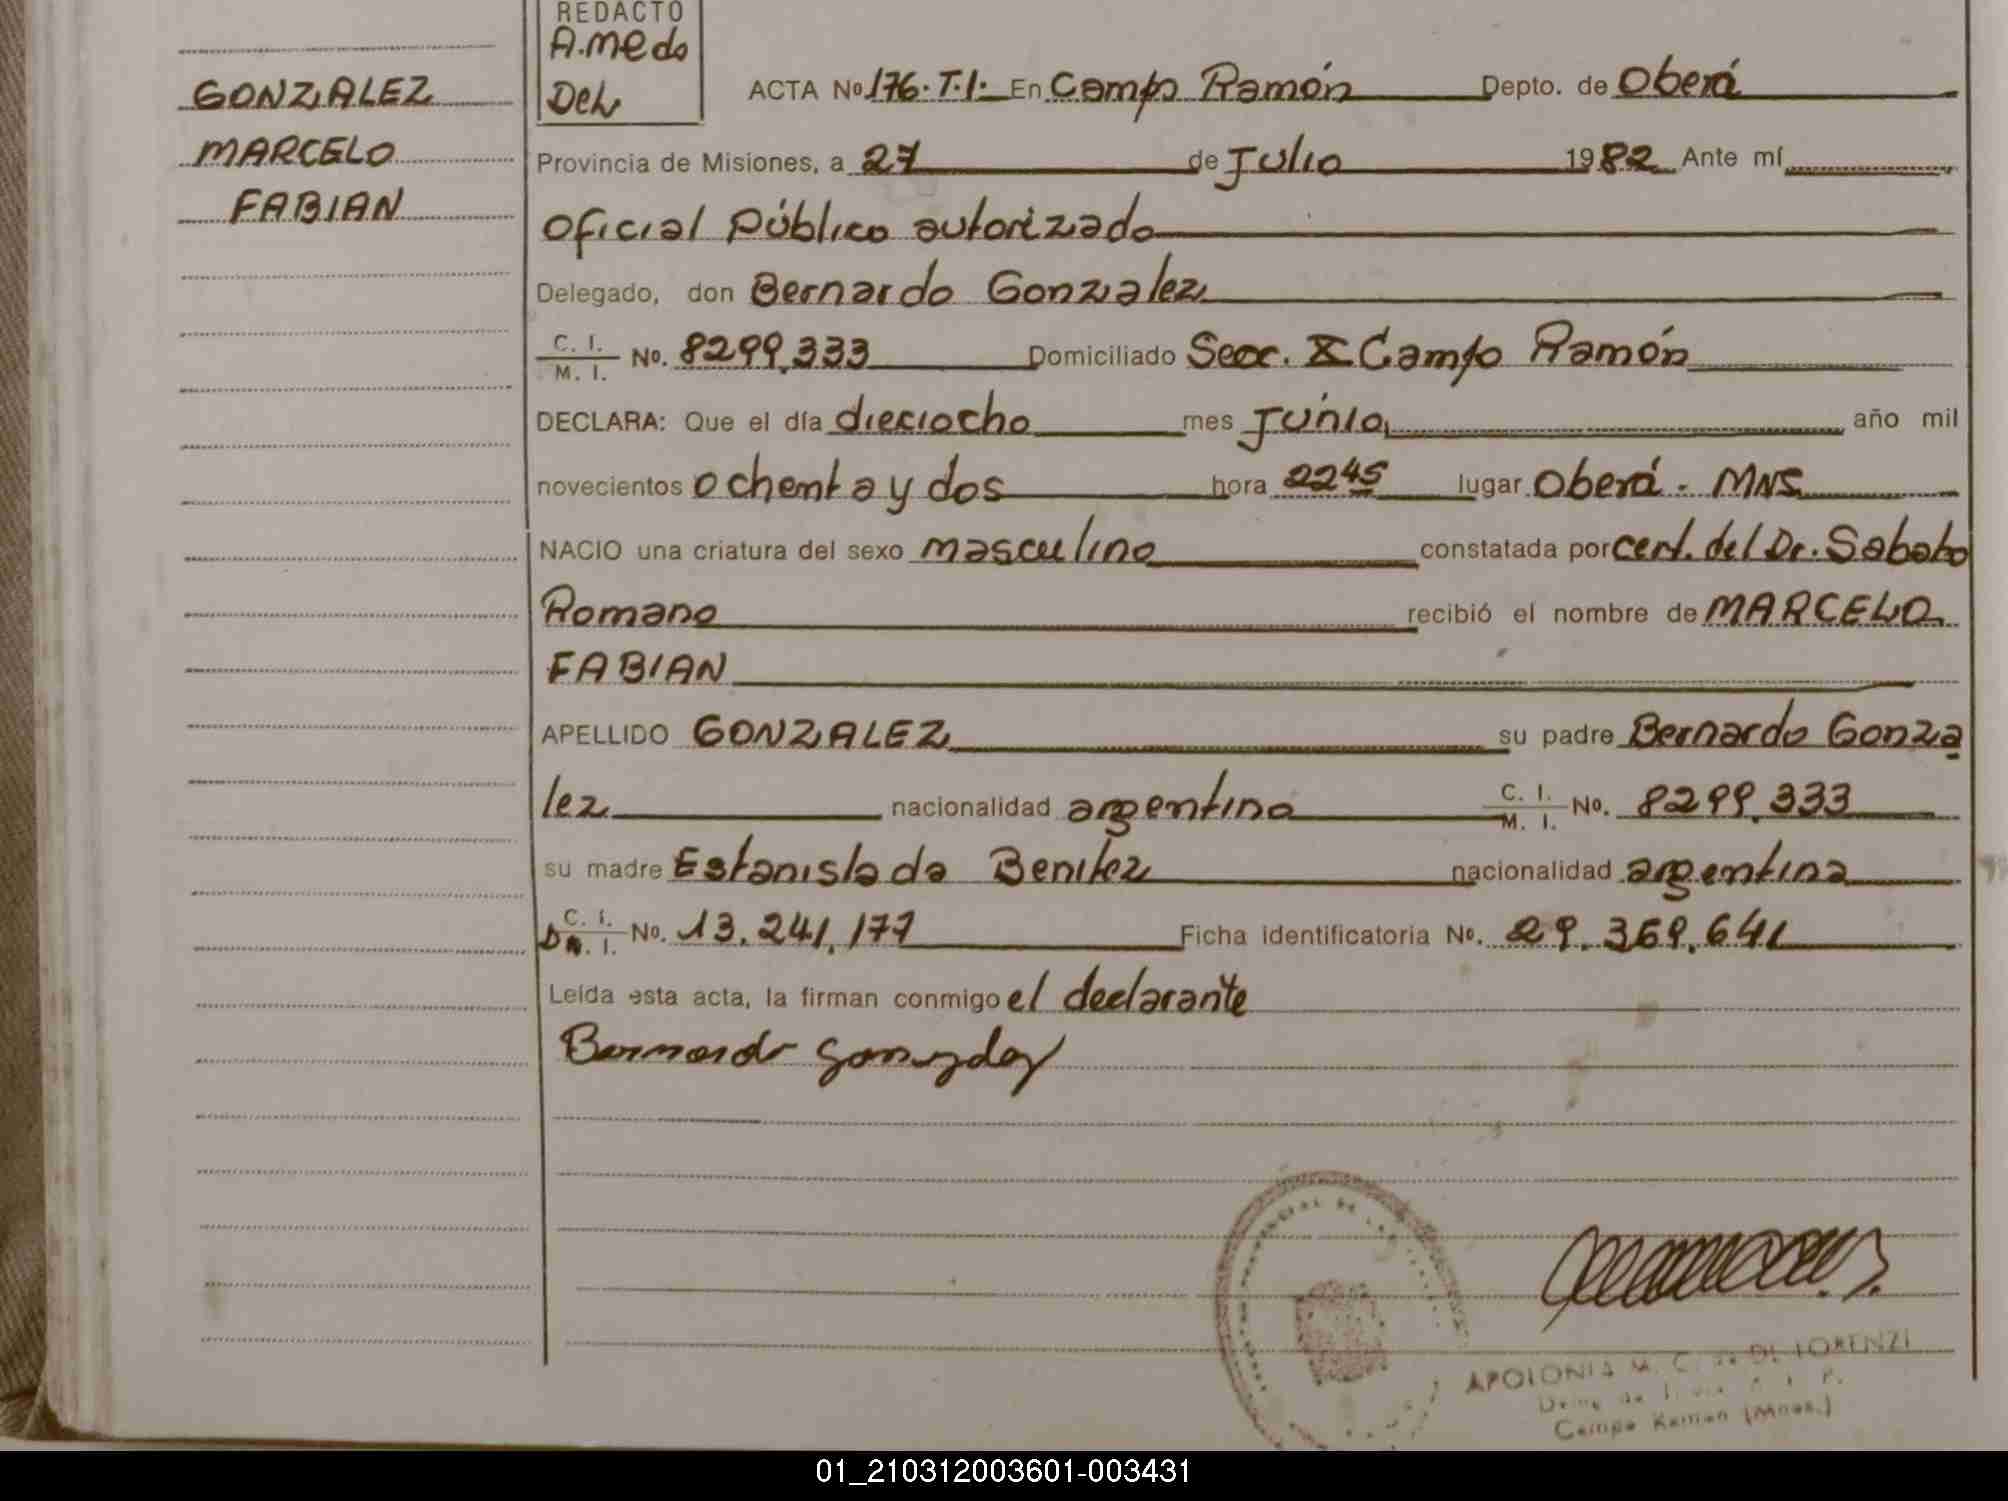 REDACTO
A.medo
Del
GONZALEZ
MARCELO
FABIAN
ACTA No 176.T.I. En Campo Ramón Depto. de Oberá
Provincia de Misiones, a 27 de Julio 1982 Ante mí
Oficial Público autorizado
Delegado, don Bernardo Gonzalez
C. I. / M. I. No. 8299.333 Domiciliado Secc. X Campo Ramón
DECLARA: Que el día dieciocho mes Junio, año mil
novecientos ochenta y dos hora 2245 lugar Oberá - MNS
NACIO una criatura del sexo masculino constatada por cert. del Dr. Sabato
Romano recibió el nombre de MARCELO
FABIAN
APELLIDO GONZALEZ su padre Bernardo Gonza
lez nacionalidad argentino C. I. / M. I. No. 8299.333
su madre Estanislada Benitez nacionalidad argentina
C. I. / D N. I. No. 13.241.177 Ficha identificatoria No. 29.369.641
Leída esta acta, la firman conmigo el declarante
Bernardo Gonzalez
APOLONIA M. C. de DI LORENZI
Campo Ramon (Mnes.)
01_210312003601-003431